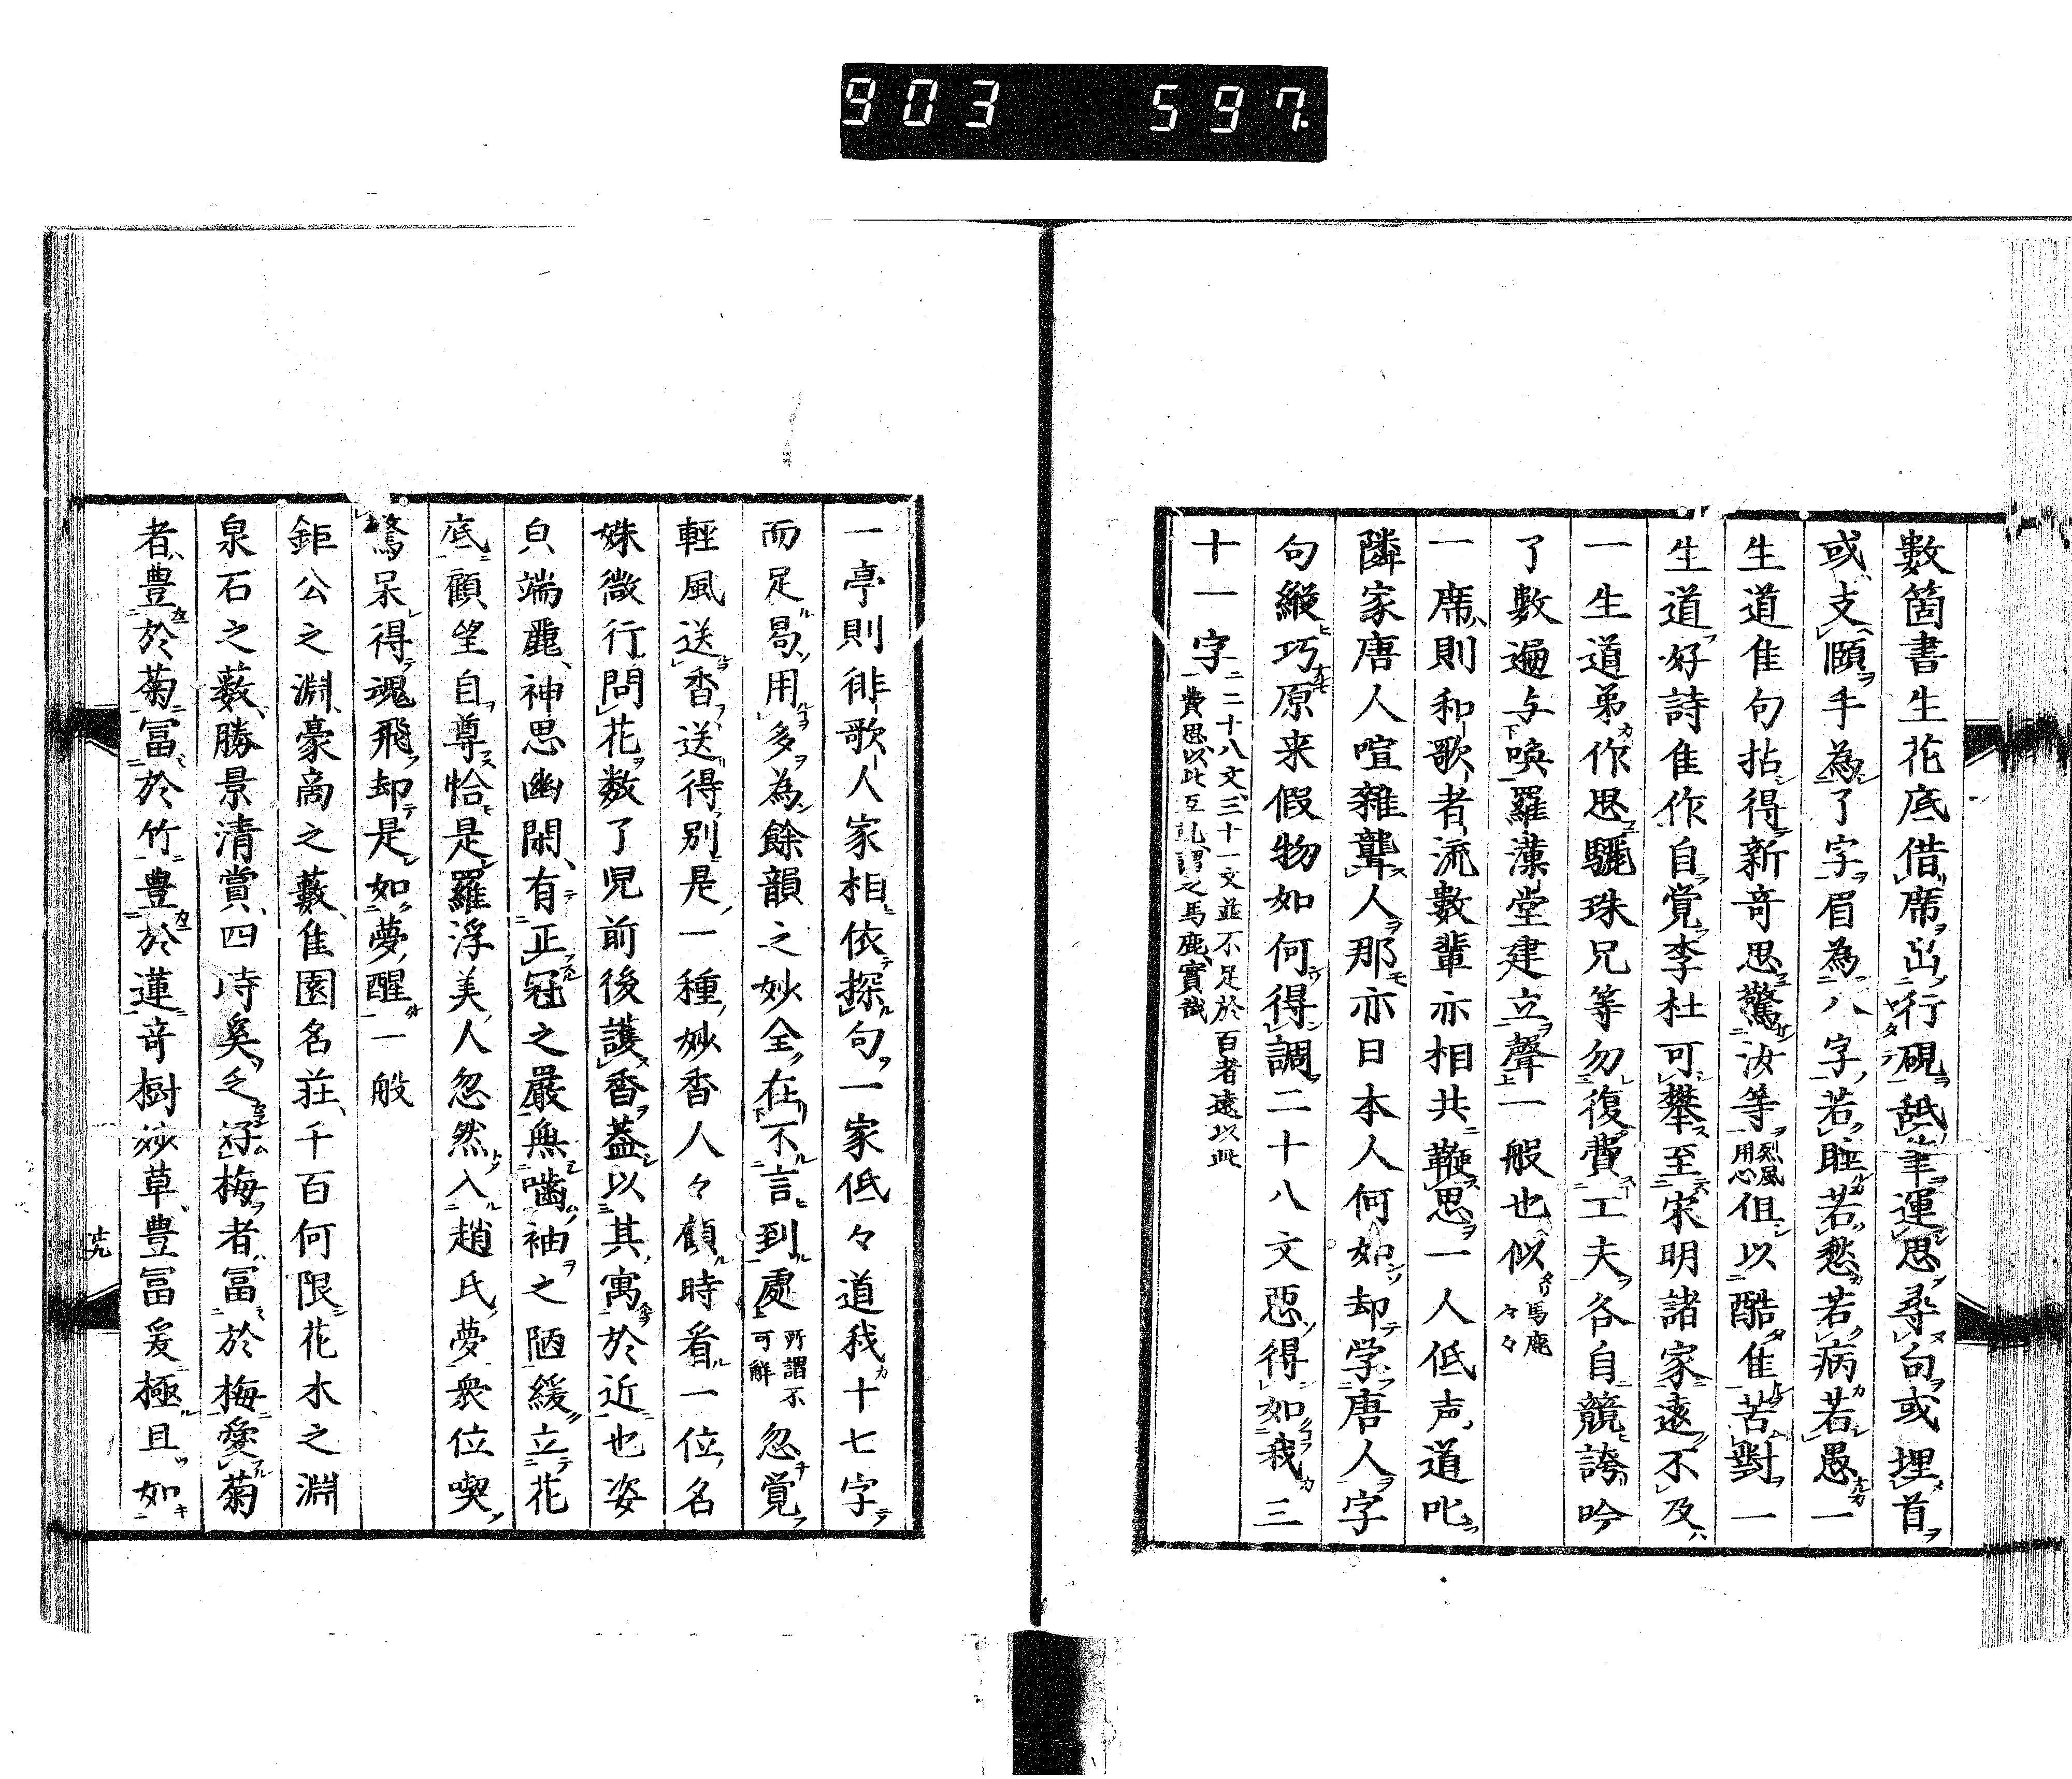 903 597.
數箇書生花底借席出行硯舐筆運思尋句或埋首
或支頤手為了字眉為八字若睡若愁若病若愚一
生道佳句拈得新奇思驚汝等烈風用心但以酷佳苦對一
生道好詩佳作自覚李杜可攀至宋明諸家遠不及
一生道弟作思驪珠兄等勿復費工夫各自競誇吟
了數遍与喚羅漢堂建立聲一般也似馬鹿々々
一席則和歌者流數輩亦相共鞭思一人低声道叱
隣家唐人喧雜聾人那亦日本人何如却学唐人字
句縱巧原来假物如何得調二十八文惡得如我三
十一字二十八文三十一文並不足於百者遠以此
費思以此互乱謂之馬鹿實哉
一亭則徘歌人家相依探句一家低々道我十七字
而足曷用多為餘韻之妙全在不言到處所謂不可解忽覚
輕風送香送得別是一種妙香人々顧時看一位名
姝微行問花数了児前後護香蓋以其寓於近也姿
皃端麗神思幽閑有正冠之嚴無嚙袖之陋緩立花
底顧望自尊恰是羅浮美人忽然入趙氏夢衆位喫
驚呆得魂飛却是如夢醒一般
鉅公之淵豪商之藪佳園名荘千百何限花木之淵
泉石之藪勝景清賞四時奚乏好梅者冨於梅愛菊
者豊於菊冨於竹豊於蓮奇樹妙草豊冨爰極且如
十九